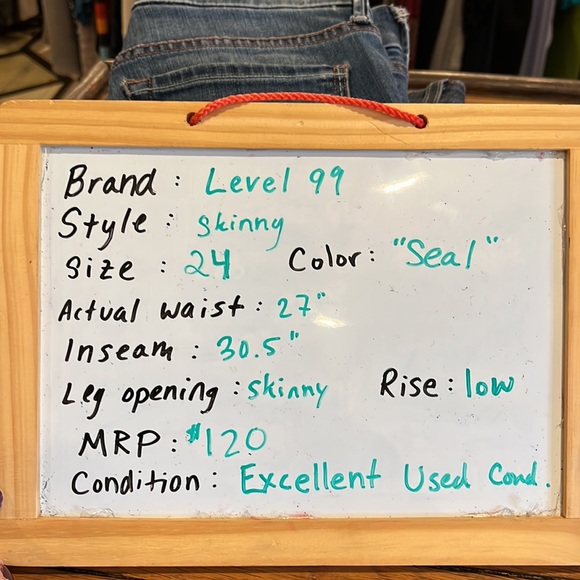 Brand : Level 99
Style : Skinny
Size : 24 Color : "Seal"
Actual waist : 27"
Inseam : 30.5"
Leg opening : Skinny Rise : low
MRP : $120
Condition : Excellent Used Cond.